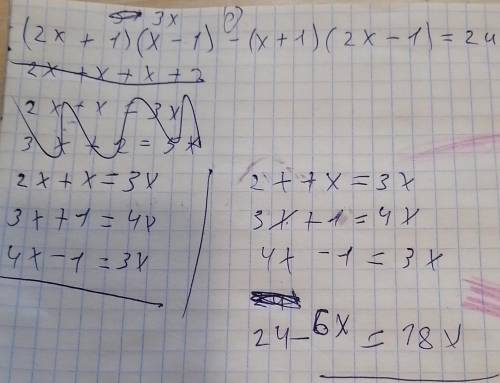 3x c)
(2x + 1)(x - 1) - (x + 1)(2x - 1) = 24
2x + x + x + 2
2x + x = 3x
2x + x = 3x
3x + 1 = 4x
4x - 1 = 3x
2 + 7x = 3x
3x + 1 = 4x
4x - 1 = 3x
24 - 6x = 18x